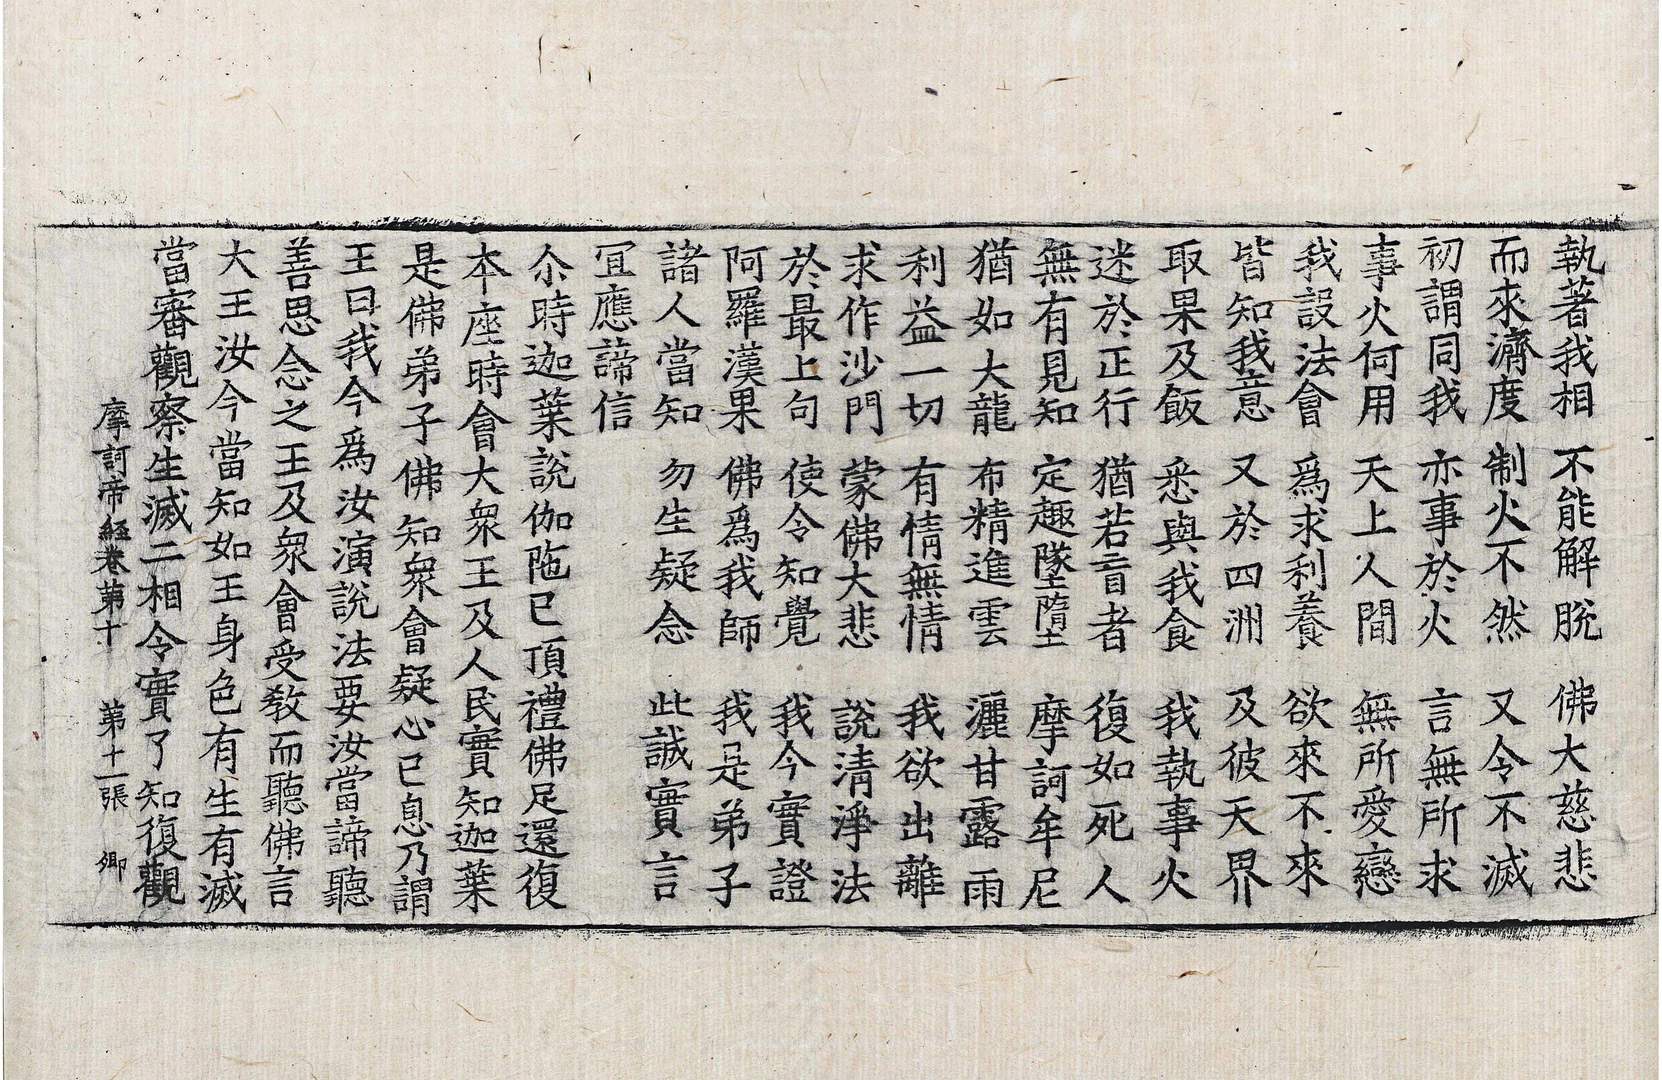 執著我相 不能解脫 佛大慈悲
而來濟度 制火不然 又令不滅
初謂同我 亦事於火 言無所求
事火何用 天上人間 無所愛戀
我設法會 爲求利養 欲來不來
皆知我意 又於四洲 及彼天界
取果及飯 悉與我食 我執事火
迷於正行 猶若盲者 復如死人
無有見知 定趣墜墮 摩訶牟尼
猶如大龍 布精進雲 灑甘露雨
利益一切 有情無情 我欲出離
求作沙門 蒙佛大悲 說清淨法
於最上句 使令知覺 我今實證
阿羅漢果 佛爲我師 我是弟子
諸人當知 勿生疑念 此誠實言
冝應諦信
尒時迦葉說伽陁已頂禮佛足還復
本座時會大衆王及人民實知迦葉
是佛弟子佛知衆會疑心已息乃謂
王曰我今爲汝演說法要汝當諦聽
善思念之王及衆會受敎而聽佛言
大王汝今當知如王身色有生有滅
當審觀察生滅二相令實了知復觀
摩訶帝經卷第十 第十一張 卿